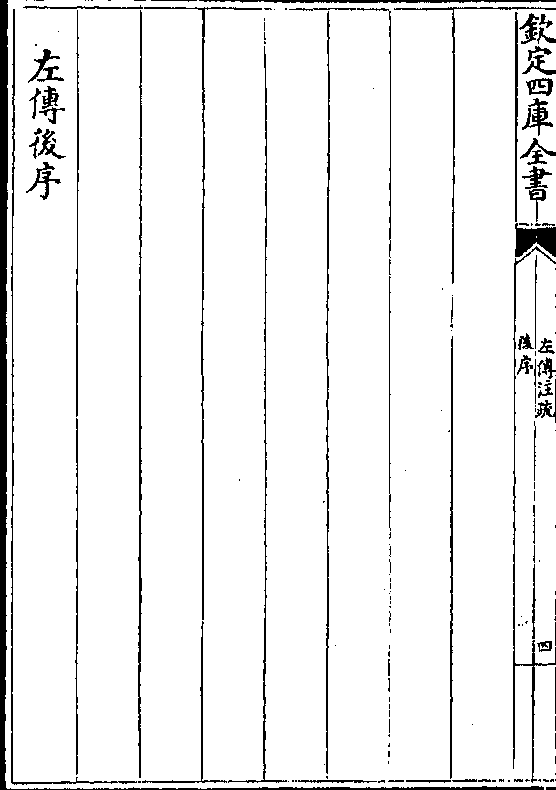 欽定四庫全書
左傳注疏
後序
四
左傳後序